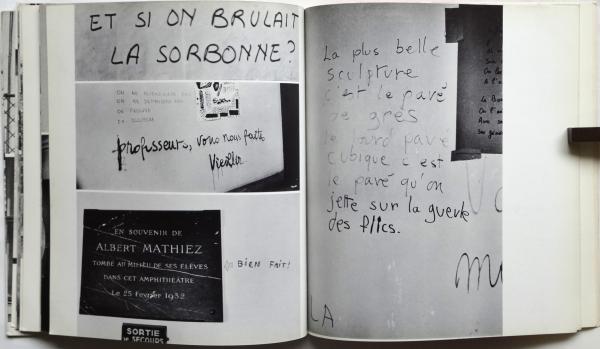 ET SI ON BRULAIT
LA SORBONNE?
professeurs, vous nous faites
vieillir
EN SOUVENIR DE
ALBERT MATHIEZ
TOMBÉ AU MILIEU DE SES ÉLÈVES
DANS CET AMPHITHÉATRE
Le 25 Février 1932
BIEN FAIT!
SORTIE
DE SECOURS
La plus belle
sculpture
c'est le pavé
de grès
le lourd pavé
cubique c'est
le pavé qu'on
jette sur la gueule
des flics.
LA